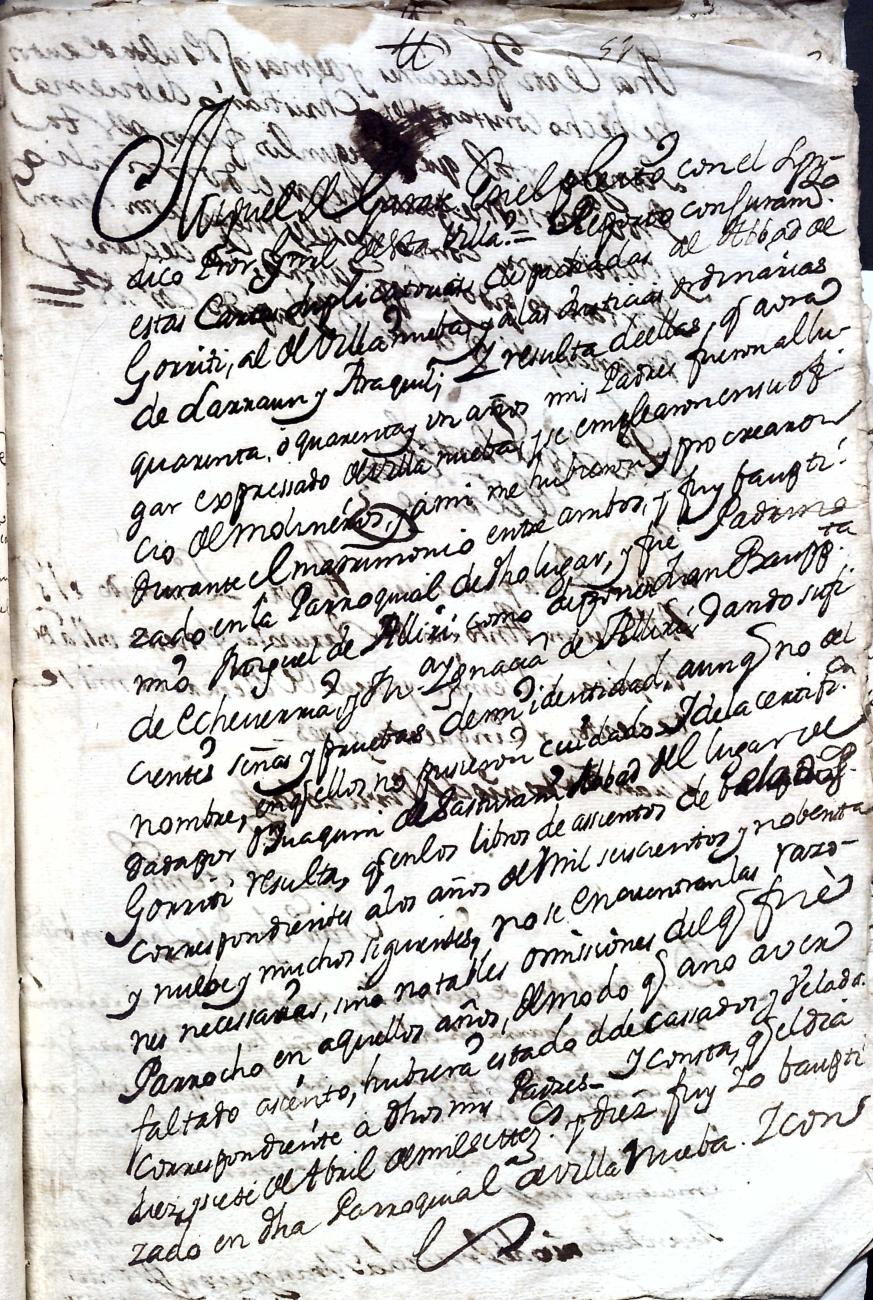 Miguel de en el pleyto con el Sin-
dico Pror. Gnrl. de esta Villa = Reporto con juramto.
estas Cartas duplicatorias despachadas al Abbad de
Gorriti, al de Villanueba, y a las Justicias ordinarias
de Larraun y Araquil; Y resulta de ellas, q avra
quarenta, o quarenta y un años mis Padres fueron al lu-
gar expressado de Villanueba, y se emplearon en su ofi-
cio de Molineros, y a mi me hubieron y procrearon
durante el matrimonio entre ambos, y fuy baupti-
zado en la Parroquial de dho lugar, y fue Padrino
mio Miguel de Alliri, como deponen Juan Bauppta.
de Echeverria, y Ignacia de Alliri, dando sufi-
cientes señas y pruebas de mi identidad, aunq no del
nombre, en q ellos no pusieron cuidado. Y de la certifion.
dada por Juaquin de Abbad del lugar de
Gorriti resulta, q en los libros de assientos de
correspondientes a los años de Mil seiscientos y nobenta
y nuebe y muchos siguientes, no se encuentran las razo-
nes necessarias, sino notables omissiones del q fue
Parrocho en aquellos años, de modo q a no aver
faltado asiento, hubiera estado de de cassados y velados
correspondiente a dhos mis Padres- Y consta, q el dia
diez y siete de Abril de mil settezos. y diez fuy Yo baupti-
zado en dha Parroquial de Villa Nueba. Y cons